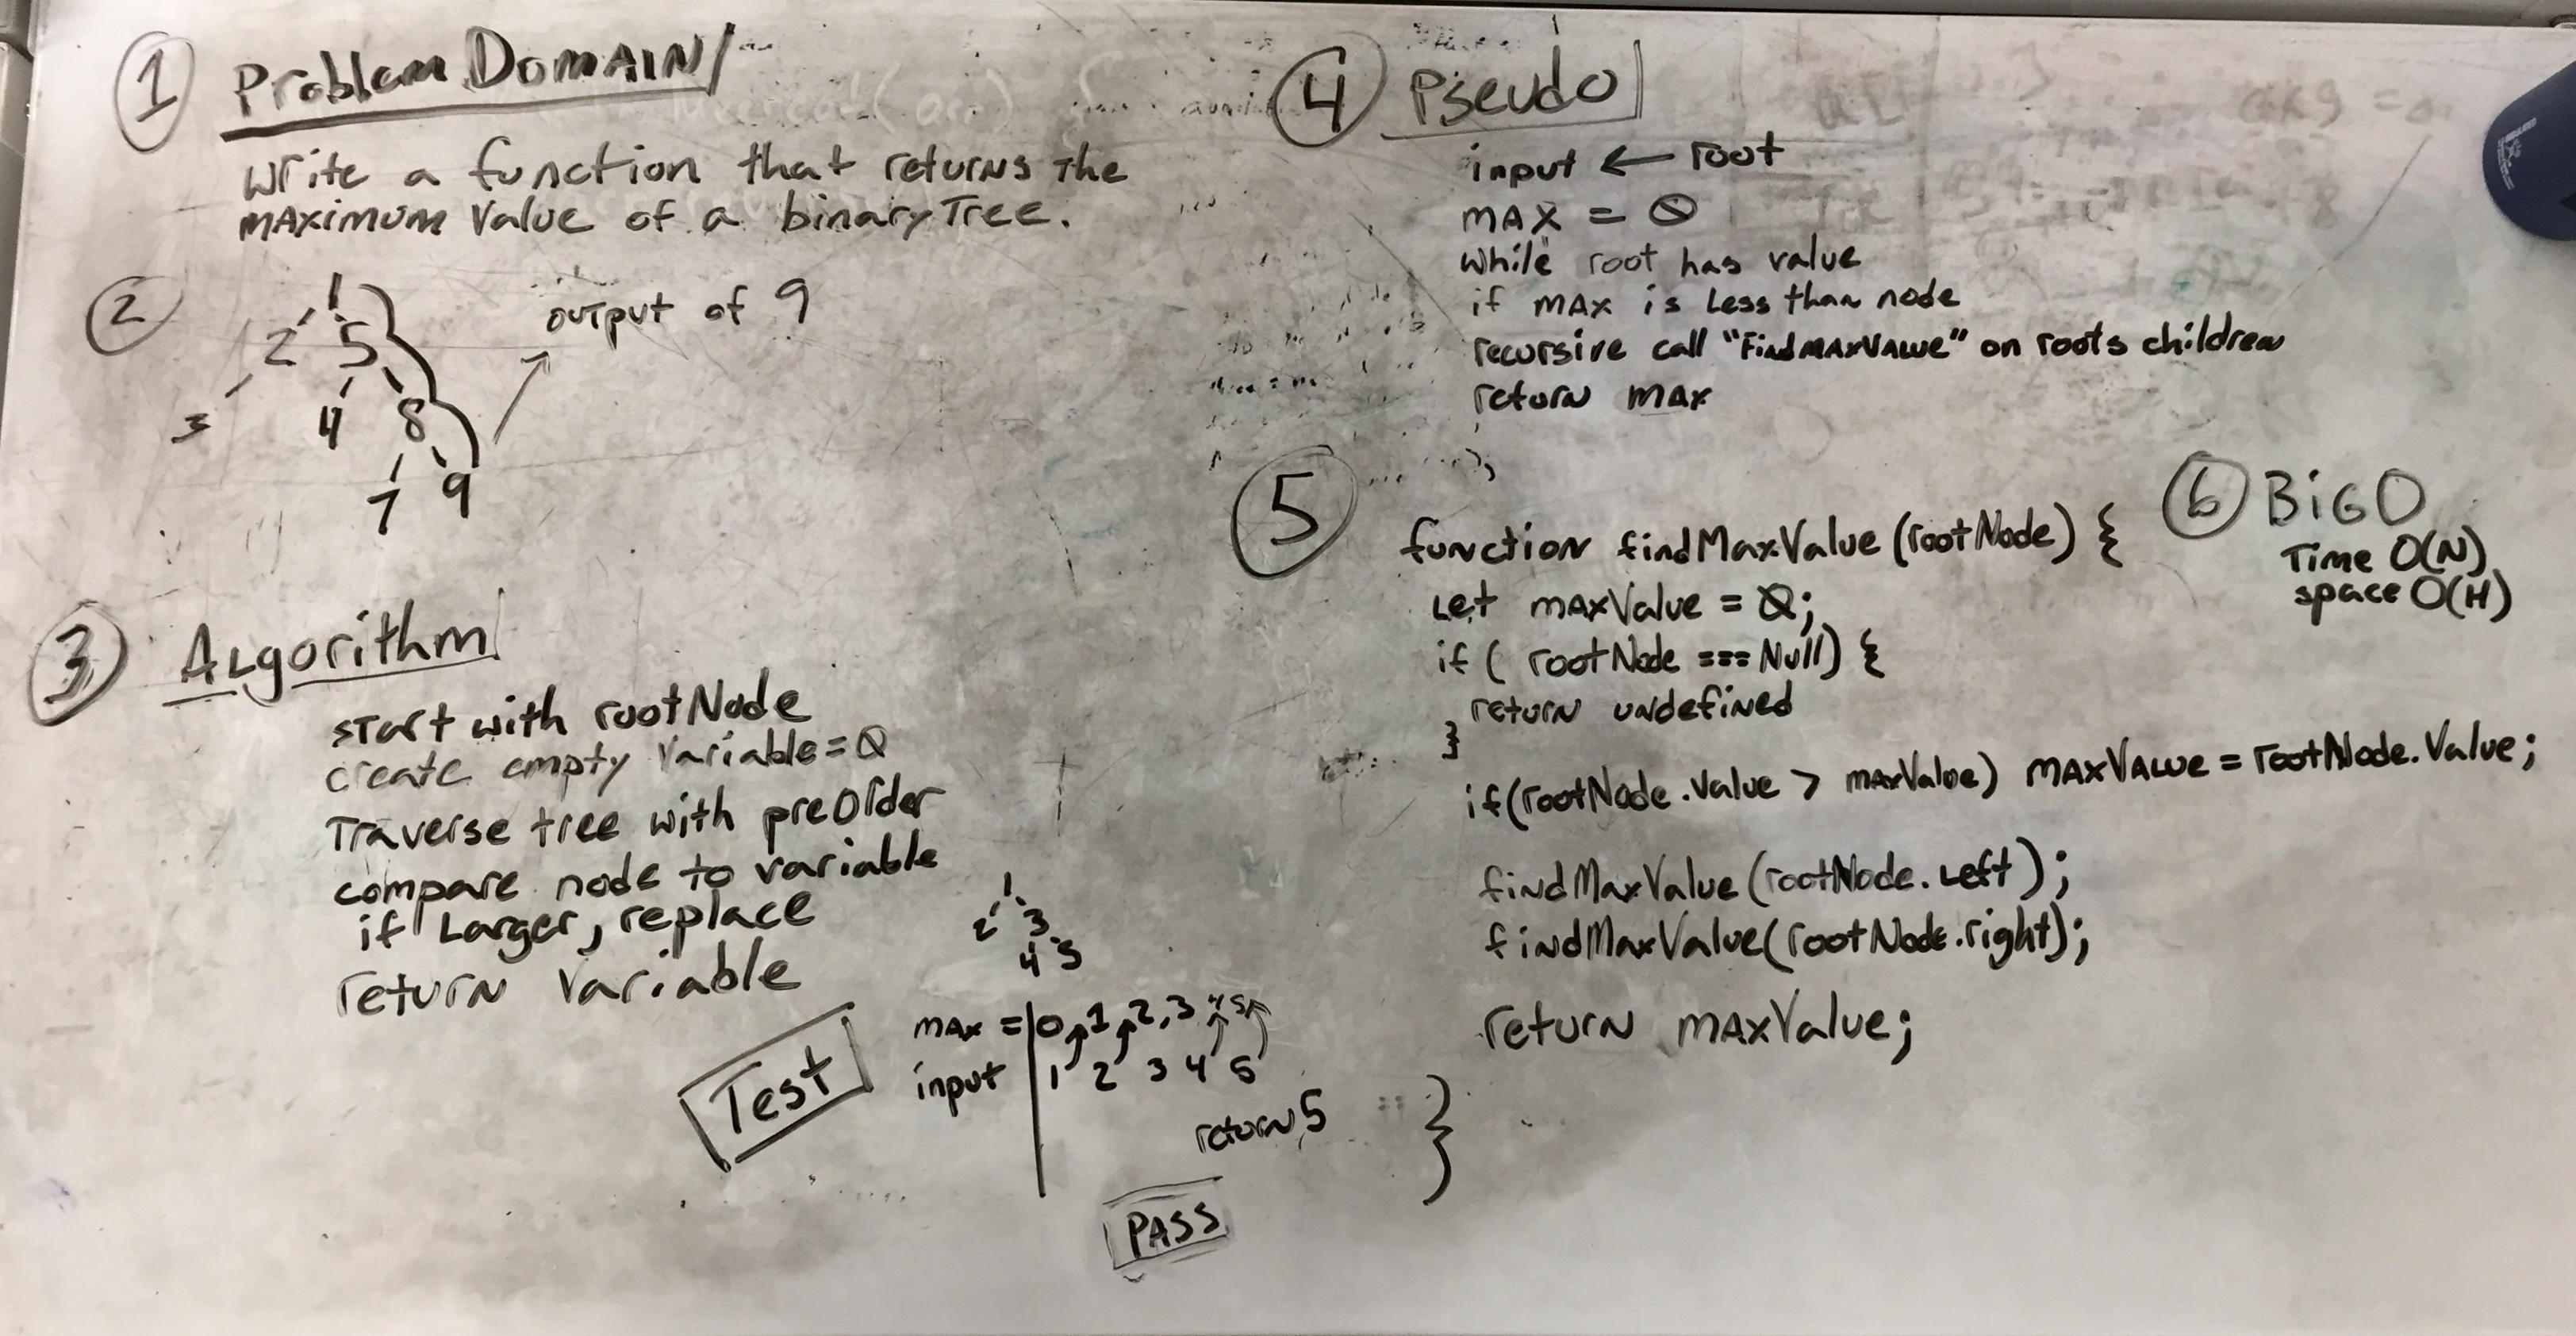 1 Problem Domain
write a function that returns the
maximum value of a binaryTree.
2
1
2 5
3 4 8
7 9
output of 9
3 Algorithm
start with rootNode
create empty variable = 0
Traverse tree with preOrder
compare node to variable
if Larger, replace
return variable
Test
1
2 3
4 5
max = 0, 1, 2, 3 4 5
input 1 2 3 4 5
return 5
PASS
4 Pseudo
input ← root
max = 0
while root has value
if max is less than node
recursive call "FindMaxValue" on roots children
return max
5
function findMaxValue (rootNode) {
Let maxValue = 0;
if ( rootNode === Null) {
return undefined
}
if(rootNode.value > maxValue) maxValue = rootNode.Value;
findMaxValue (rootNode.Left);
findMaxValue(rootNode.right);
return maxValue;
}
6 BiG O
Time O(N)
space O(H)